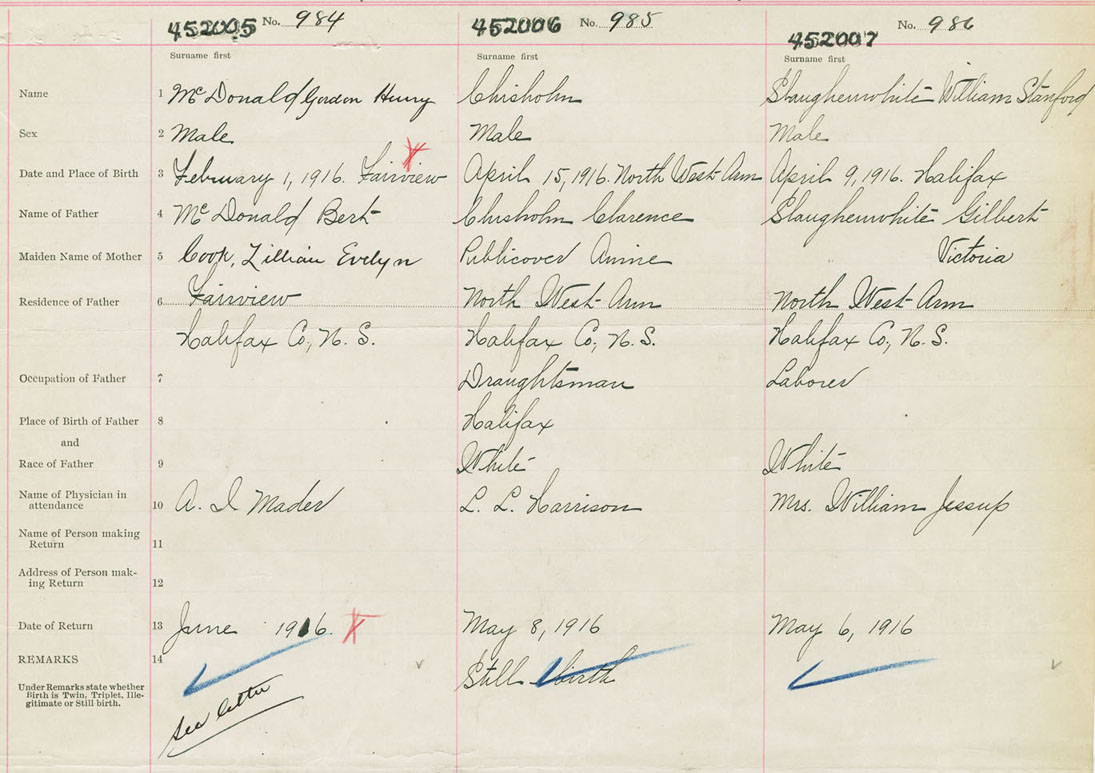 452005 No. 984 452006 No. 985 452007 No. 986
Surname first Surname first Surname first
Name 1 McDonald Gordon Henry Chisholm Slaughenwhite William Stanford
Sex 2 Male Male Male
Date and Place of Birth 3 February 1, 1916. Fairview April 15, 1916. North West Arm April 9, 1916. Halifax
Name of Father 4 McDonald Bert Chisholm Clarence Slaughenwhite Gilbert
Maiden Name of Mother 5 Cook, Lillian Evelyn Publicover Annie Victoria
Residence of Father 6 Fairview North West Arm North West Arm
Halifax Co., N. S. Halifax Co., N. S. Halifax Co., N. S.
Occupation of Father 7 Draughtsman Laborer
Place of Birth of Father 8 Halifax
and
Race of Father 9 White White
Name of Physician in
attendance 10 A. I Mader L. L. Harrison Mrs. William Jessup
Name of Person making
Return 11
Address of Person mak-
ing Return 12
Date of Return 13 June 1916. May 8, 1916 May 6, 1916
REMARKS 14 Still birth
Under Remarks state whether
Birth is Twin, Triplet, Ille-
gitimate or Still birth.
See letter